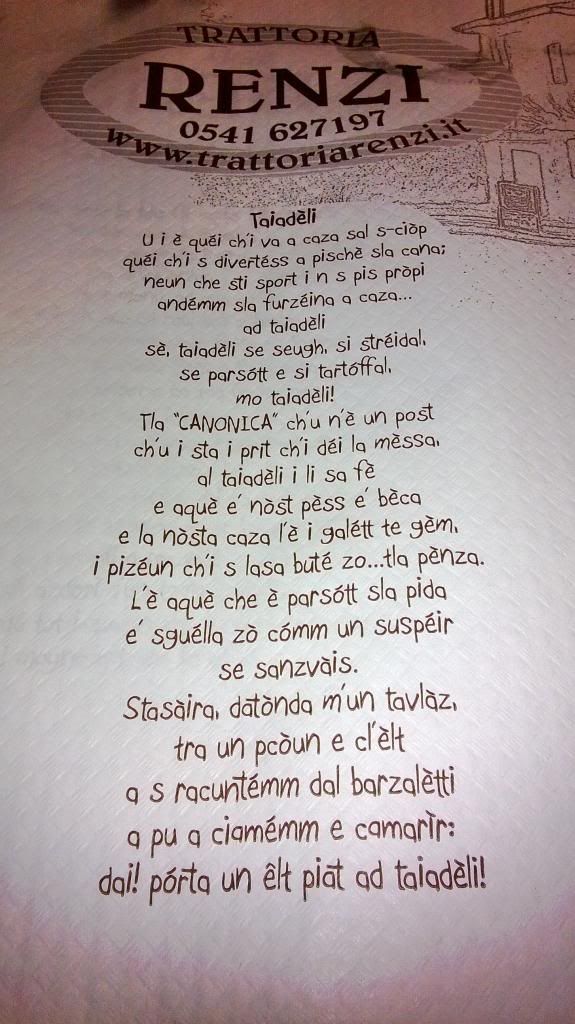 TRATTORIA
RENZI
0541 627197
www.trattoriarenzi.it
Taiadèli
U i è quéi ch'i va a caza sal s-ciòp
quéi ch'i s divertéss a pischè sla cana;
neun che sti sport i n s pis pròpi
andémm sla furzéina a caza...
ad taiadèli
sè, taiadèli se seugh, si stréidal,
se parsótt e si tartóffal,
mo taiadèli!
Tla "CANONICA" ch'u n'è un post
ch'u i sta i prit ch'i déi la mèssa,
al taiadèli i li sa fè
e aquè e' nòst pèss e' bèca
e la nòsta caza l'è i galétt te gèm,
i pizéun ch'i s lasa buté zo...tla pènza.
L'è aquè che è parsótt sla pida
e' sguélla zò cómm un suspéir
se sanzvàis.
Stasàira, datònda m'un tavlàz,
tra un pcòun e cl'èlt
a s racuntémm dal barzalètti
a pu a ciamémm e camarìr:
dai! pórta un êlt piat ad taiadèli!